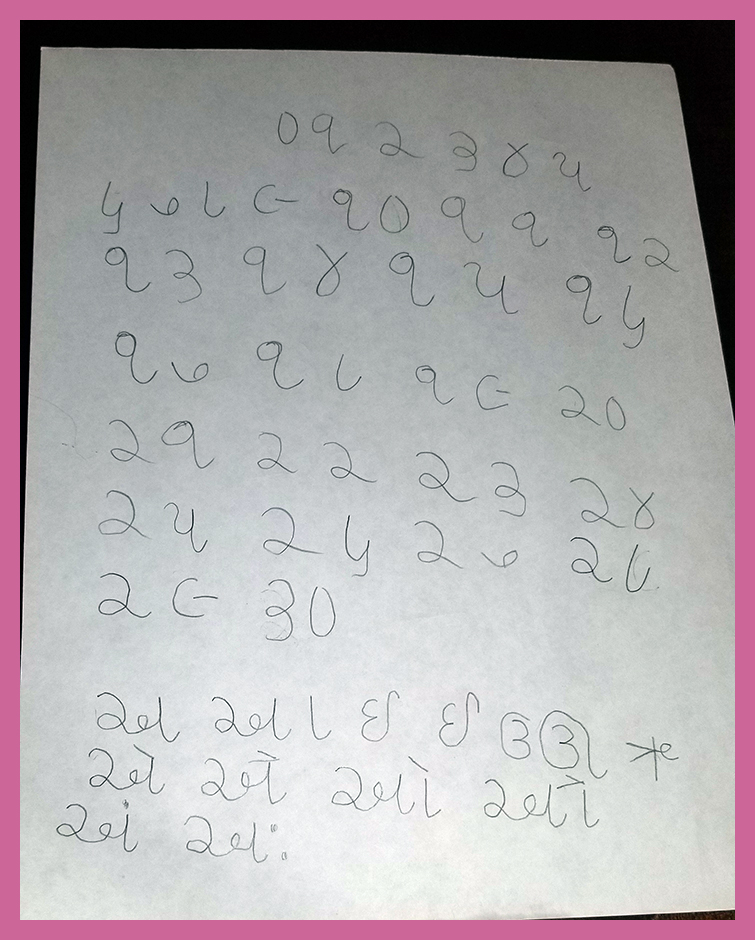 ૦૧ ૨ ૩ ૪ ૫
૬ ૭ ૮ ૯ ૧૦ ૧૧ ૧૨
૧૩ ૧૪ ૧૫ ૧૬
૧૭ ૧૮ ૧૯ ૨૦
૨૧ ૨૨ ૨૩ ૨૪
૨૫ ૨૬ ૨૭ ૨૮
૨૯ ૩૦
અ આ ઇ ઈ ઉ ઊ ઋ
એ ઐ ઓ ઔ
અં અઃ